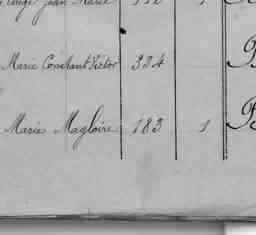 Jean Marie
Marie Constant Victor 334
Marie Magloire 183 1